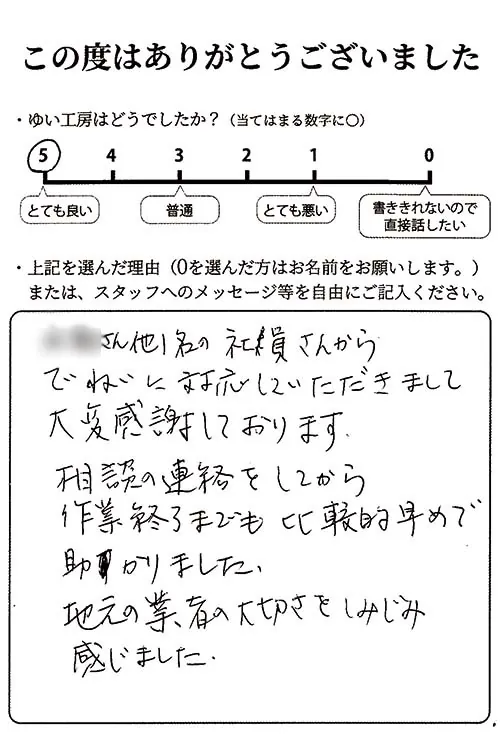 この度はありがとうございました
・ゆい工房はどうでしたか？（当てはまる数字に〇）
5 4 3 2 1 0
とても良い 普通 とても悪い 書ききれないので
直接話したい
・上記を選んだ理由（0を選んだ方はお名前をお願いします。）
または、スタッフへのメッセージ等を自由にご記入ください。
さん他1名の社員さんから
ていねいに対応していただきまして
大変感謝しております.
相談の連絡をしてから
作業終了までも比較的早めで
助かりました.
地元の業者の大切さをしみじみ
感じました.